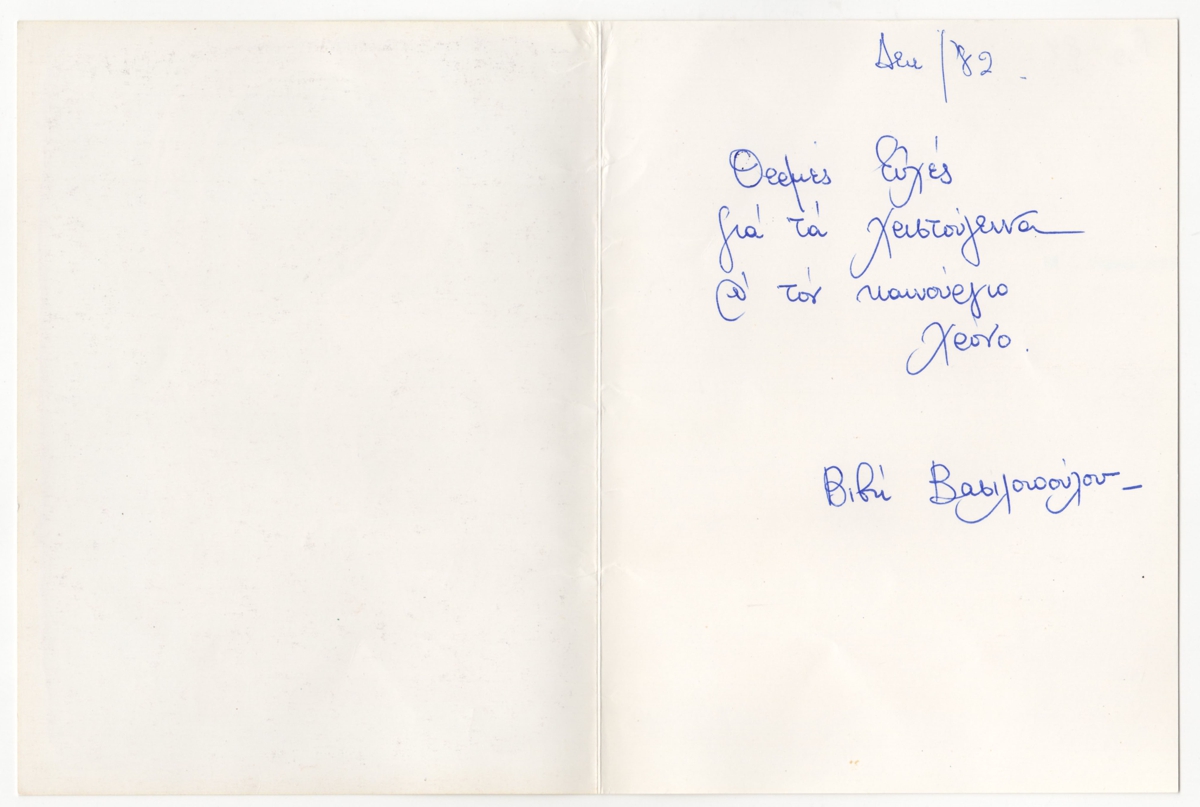 Δεκ/'82.
Θερμές Εὐχές
γιά τά Χριστούγεννα
κ' τόν καινούργιο
Χρόνο.
Βιβή Βασιλοπούλου –